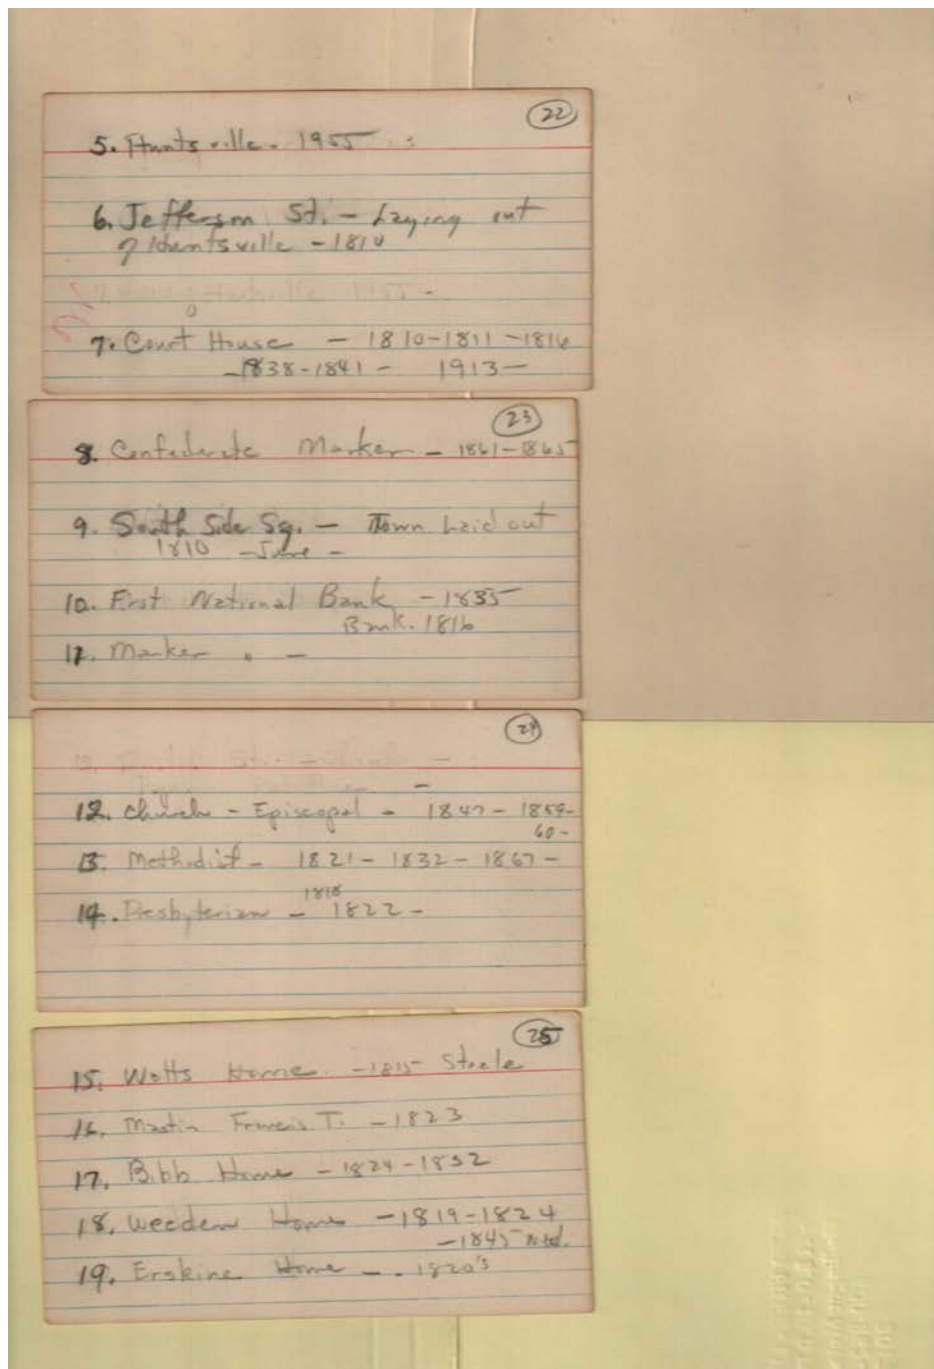 22
5. Huntsville. 1955
6. Jefferson St. - Laying out
of Huntsville - 1810
Huntsville 1955 -
7. Court House - 1810-1811-1816
-1838-1841 - 1913-
23
8. Confederate Marker - 1861-1865
9. South Side Sq. - Town Laid out
1810 - June -
10. First National Bank - 1835
Bank. 1816
11. Marker . -
24
12. Church - Episcopal - 1847 - 1859-
60-
13. Methodist - 1821 - 1832 - 1867 -
1818
14. Presbyterian - 1822 -
25
15. Watts Home. - 1815 Steele
16. Mastin Francis T. - 1823
17. Bibb Home - 1824-1832
18. Weeden Home - 1819-1824
- 1845
19. Erskine Home - . 1820's